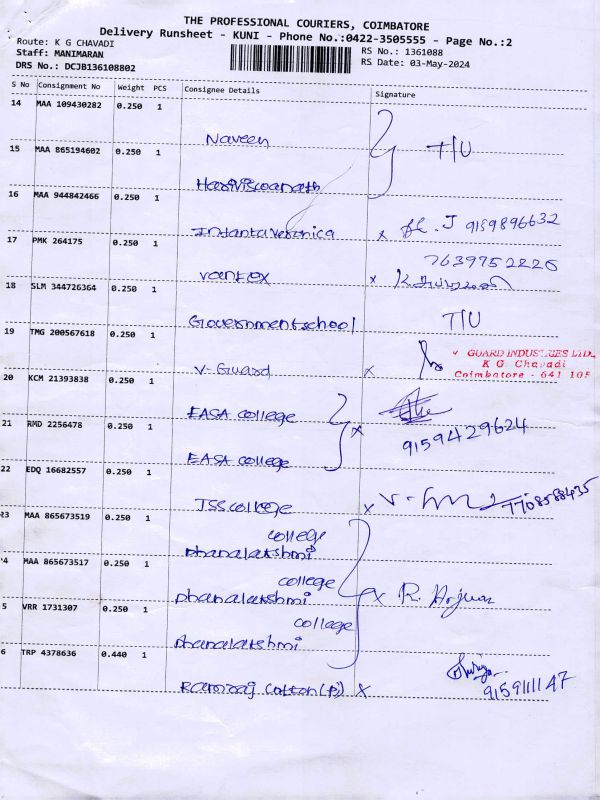 THE PROFESSIONAL COURIERS, COIMBATORE
Delivery Runsheet - KUNI - Phone No.:0422-3505555 - Page No.:2
Route: K G CHAVADI
Staff: MANIMARAN
DRS No.: DCJB136108802
RS No.: 1361088
RS Date: 03-May-2024
S No Consignment No Weight PCS Consignee Details Signature
14 MAA 109430282 0.250 1
Naveen T/U
15 MAA 865194602 0.250 1
Hariviswanath
16 MAA 944842466 0.250 1
Infanta Veronica x J 9159896632
17 PMK 264175 0.250 1
7639752226
Vantex x
18 SLM 344726364 0.250 1
Government school T/U
19 TMG 200567618 0.250 1
V-Guard x
V GUARD INDUSTRIES LTD.,
K G Chavadi
Coimbatore - 641 105
20 KCM 21393838 0.250 1
EASA college x
21 RMD 2256478 0.250 1
9159429624
EASA college
22 EDQ 16682557 0.250 1
JSS college x 7708568435
23 MAA 865673519 0.250 1
college
Dhanalakshmi
24 MAA 865673517 0.250 1
college
Dhanalakshmi x R. Arjun
5 VRR 1731307 0.250 1
college
Dhanalakshmi
6 TRP 4378636 0.440 1
Ramraj Cotton (P) x
9159111147